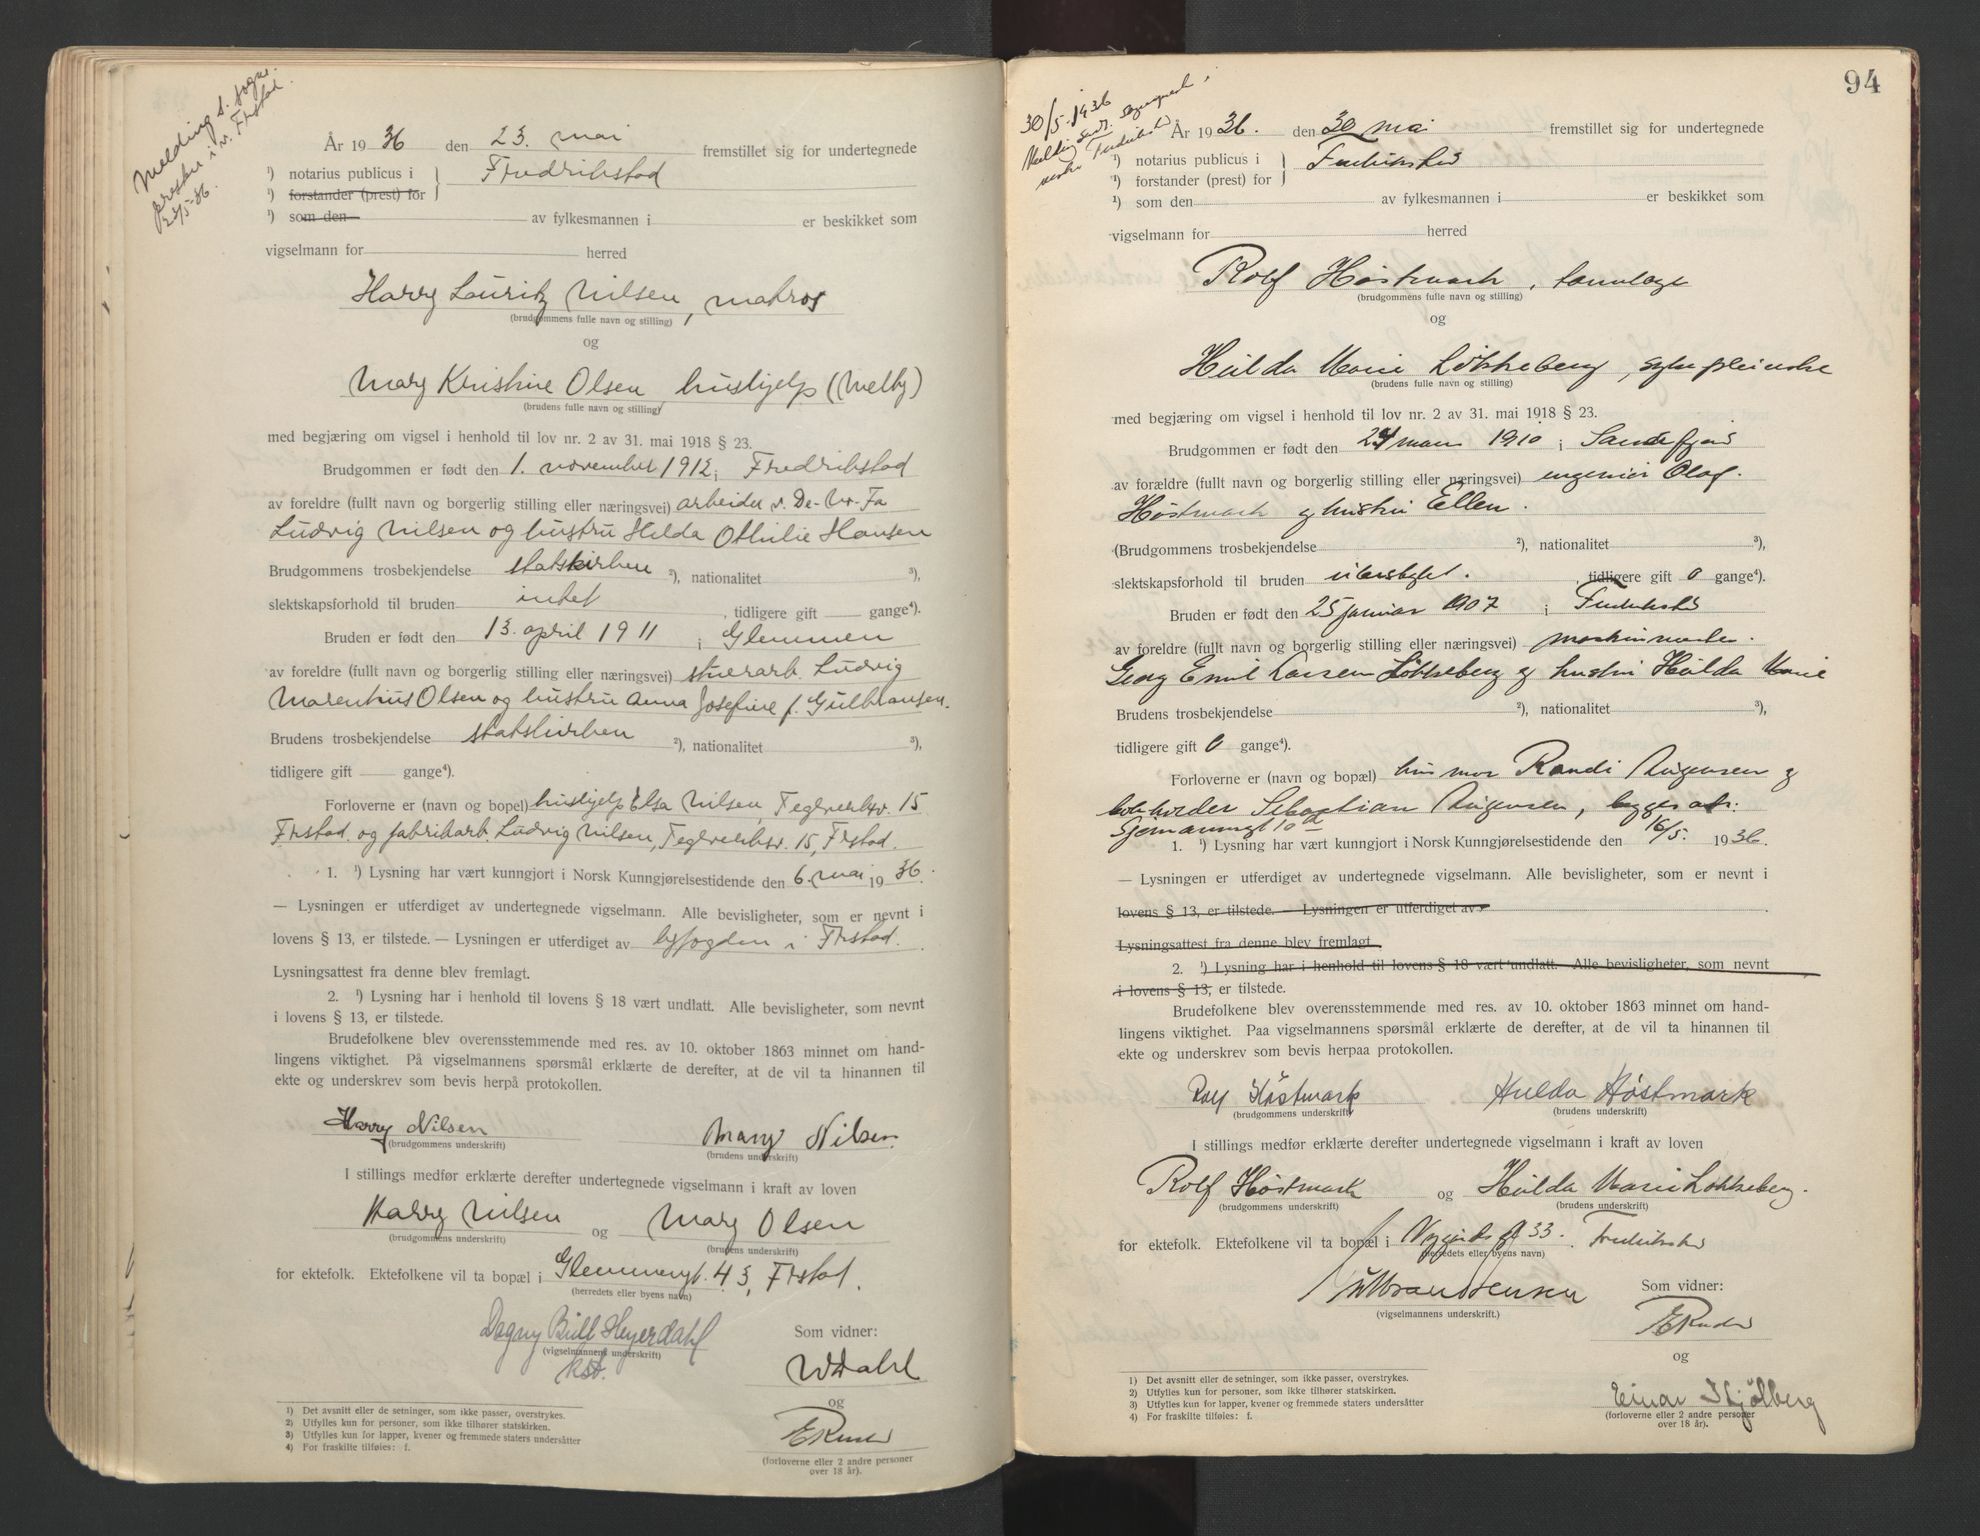 Melding s. sogne-
presten i v. Frstad.
23/5-36.
År 1936 den 23. mai fremstillet sig for undertegnede
¹) notarius publicus i } Fredrikstad
¹) forstander (prest) for
¹) som den av fylkesmannen i er beskikket som
vigselmann for herred
Harry Lauritz Nilsen, matros
(brudgommens fulle navn og stilling)
og
Mary Kristine Olsen, hushjelp (Melby)
(brudens fulle navn og stilling)
med begjæring om vigsel i henhold til lov nr. 2 av 31. mai 1918 § 23.
Brudgommen er født den 1. november 1912 i Fredrikstad
av foreldre (fullt navn og borgerlig stilling eller næringsvei) arbeider v. De-No-Fa
Ludvig Nilsen og hustru Hilda Othilie Hansen
Brudgommens trosbekjendelse statskirken ²), nationalitet ³),
slektskapsforhold til bruden intet, tidligere gift — gange⁴).
Bruden er født den 13. april 1911 i Glemmen
av foreldre (fullt navn og borgerlig stilling eller næringsvei) stuerarb. Ludvig
Marenhius Olsen og hustru Anna Josefine f. Gulbransen.
Brudens trosbekjendelse statskirken ²), nationalitet ³),
tidligere gift — gange⁴).
Forloverne er (navn og bopel) hushjelp Elsa Nilsen, Teglverksv. 15
Frstad. og fabrikarb. Ludvig Nilsen, Teglverksv. 15, Frstad.
1. ¹) Lysning har vært kunngjort i Norsk Kunngjørelsestidende den 6. mai 1936.
— Lysningen er utferdiget av undertegnede vigselmann. Alle bevisligheter, som er nevnt i
lovens § 13, er tilstede. — Lysningen er utferdiget av byfogden i Frstad.
Lysningsattest fra denne blev fremlagt.
2. ¹) Lysning har i henhold til lovens § 18 vært undlatt. Alle bevisligheter, som nevnt
i lovens § 13, er tilstede.
Brudefolkene blev overensstemmende med res. av 10. oktober 1863 minnet om hand-
lingens viktighet. På vigselmannens spørsmål erklærte de derefter, at de vil ta hinannen til
ekte og underskrev som bevis herpå protokollen.
Harry Nilsen Mary Nilsen.
(brudgommens underskrift) (brudens underskrift)
I stillings medfør erklærte derefter undertegnede vigselmann i kraft av loven
Harry Nilsen og Mary Olsen
(brudgommens underskrift) (brudens underskrift)
for ektefolk. Ektefolkene vil ta bopæl i Glemmengt. 43, Frstad.
(herredets eller byens navn)
Dagny Bull Heyerdahl
(vigselmannens underskrift)
kst.
Som vidner:
W Dahl
og
E Ruud
(forloverne eller 2 andre personer
over 18 år).
1) Det avsnitt eller de setninger, som ikke passer, overstrykes.
2) Utfylles kun for personer, som ikke tilhører statskirken.
3) Utfylles kun for lapper, kvener og fremmede staters undersåtter
4) For fraskilte tilføies: f.
94
30/5-1936
Melding sendt sogneprest i
Fredrikstad
År 1936. den 30 mai fremstillet sig for undertegnede
¹) notarius publicus i } Fredrikstad
¹) forstander (prest) for
¹) som den av fylkesmannen i er beskikket som
vigselmann for herred
Rolf Høstmark, tannlæge
(brudgommens fulle navn og stilling)
og
Hulda Marie Løkkeberg, sykepleierske
(brudens fulle navn og stilling)
med begjæring om vigsel i henhold til lov nr. 2 av 31. mai 1918 § 23.
Brudgommen er født den 24 mars 1910 i Sandefjord
av forældre (fullt navn og borgerlig stilling eller næringsvei) ingeniør Olaf
Høstmark og hustru Ellen.
(Brudgommens trosbekjendelse ²), nationalitet ³),
slektskapsforhold til bruden ubeslektet., tidligere gift 0 gange⁴).
Bruden er født den 25 januar 1907 i Fredrikstad
av foreldre (fullt navn og borgerlig stilling eller næringsvei) maskinmester
Georg Emil Larsen Løkkeberg og hustru Hulda Marie
Brudens trosbekjendelse ²), nationalitet ³),
tidligere gift 0 gange⁴).
Forloverne er (navn og bopæl) husmor Randi Jürgensen og
bokholder Sebastian Jürgensen, begges adr.
1. ¹) Lysning har vært kunngjort i Norsk Kunngjørelsestidende den 16/5. 1936.
— Lysningen er utferdiget av undertegnede vigselmann. Alle bevisligheter, som er nevnt i
lovens § 13, er tilstede. — Lysningen er utferdiget av
Lysningsattest fra denne blev fremlagt.
2. ¹) Lysning har i henhold til lovens § 18 vært undlatt. Alle bevisligheter, som nevnt
i lovens § 13, er tilstede.
Brudefolkene blev overensstemmende med res. av 10. oktober 1863 minnet om hand-
lingens viktighet. Paa vigselmannens spørsmål erklærte de derefter, at de vil ta hinannen til
ekte og underskrev som bevis herpaa protokollen.
Rolf Høstmark Hulda Høstmark
(brudgommens underskrift) (brudens underskrift)
I stillings medfør erklærte derefter undertegnede vigselmann i kraft av loven
Rolf Høstmark og Hulda Marie Løkkeberg.
(brudgommens underskrift) (brudens underskrift)
for ektefolk. Ektefolkene vil ta bopæl i Nygårdsgt 33. Fredrikstad
(herredets eller byens navn)
(vigselmannens underskrift.)
Som vidner:
E Ruud
og
Einar Skjølberg
(forloverne eller 2 andre personer
over 18 år).
1) Det avsnitt eller de setninger, som ikke passer, overstrykes.
2) Utfylles kun for personer, som ikke tilhører statskirken.
3) Utfylles kun for lapper, kvener og fremmede staters undersåtter
4) For fraskilte tilføies: f.